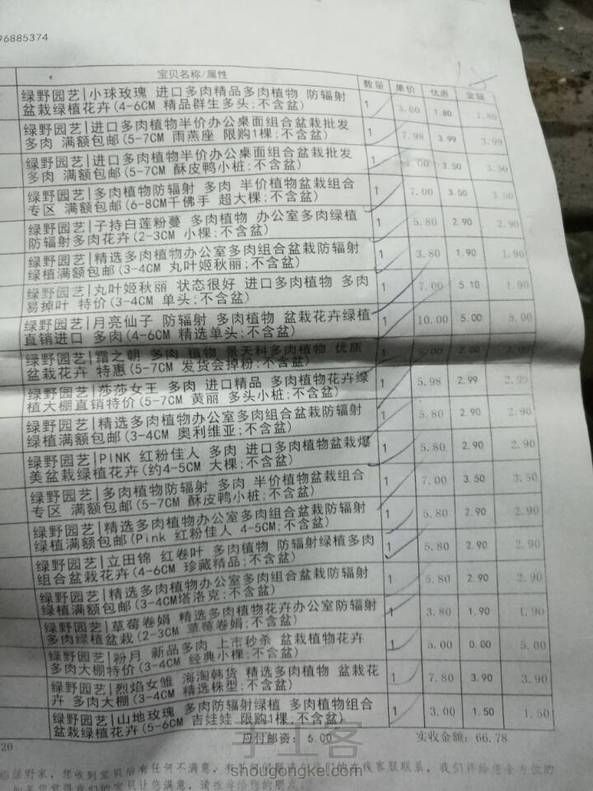 96885374
宝贝名称/属性 数量 单价 优惠 金额
绿野园艺|小球玫瑰 进口多肉精品多肉植物 防辐射
盆栽绿植花卉(4-6CM 精品群生多头;不含盆) 1 3.60 1.80 1.80
绿野园艺|进口多肉植物半价办公桌面组合盆栽批发
多肉 满额包邮(5-7CM 雨燕座 限购1棵;不含盆) 1 7.98 3.99 3.99
绿野园艺|进口多肉植物半价办公桌面组合盆栽批发
多肉 满额包邮(5-7CM 酥皮鸭小桩;不含盆) 1 7.00 3.50 3.50
绿野园艺|多肉植物防辐射 多肉 半价植物盆栽组合
专区 满额包邮(6-8CM千佛手 超大棵;不含盆) 1 7.00 3.50 3.50
绿野园艺|子持白莲粉蔓 多肉植物 办公室多肉绿植
防辐射多肉花卉(2-3CM 小棵;不含盆) 1 5.80 2.90 2.90
绿野园艺|精选多肉植物办公室多肉组合盆栽防辐射
绿植满额包邮(3-4CM 丸叶姬秋丽;不含盆) 1 3.80 1.90 1.90
绿野园艺|丸叶姬秋丽 状态很好 进口多肉植物 多肉
易掉叶 特价(3-4CM 单头;不含盆) 1 7.00 5.10 1.90
绿野园艺|月亮仙子 防辐射 多肉植物 盆栽花卉绿植
直销进口 多肉(4-6CM 精选单头;不含盆) 1 10.00 5.00 5.00
绿野园艺|霜之朝 多肉 植物 景天科多肉植物 优质
盆栽花卉 特惠(5-7CM 发货会掉粉;不含盆) 1 5.00
绿野园艺|莎莎女王 多肉 进口精品 多肉植物花卉绿
植大棚直销特价(5-7CM 黄丽 多头小桩;不含盆) 1 5.98 2.99 2.99
绿野园艺|精选多肉植物办公室多肉组合盆栽防辐射
绿植满额包邮(3-4CM 奥利维亚;不含盆) 1 5.80 2.90 2.90
绿野园艺|PINK 红粉佳人 多肉 进口多肉植物盆栽爆
美盆栽绿植花卉(约4-5CM 大棵;不含盆) 1 5.80 2.90 2.90
绿野园艺|多肉植物防辐射 多肉 半价植物盆栽组合
专区 满额包邮(5-7CM 酥皮鸭小桩;不含盆) 1 7.00 3.50 3.50
绿野园艺|精选多肉植物办公室多肉组合盆栽防辐射
绿植满额包邮(Pink 红粉佳人 4-5CM;不含盆) 1 5.80 2.90 2.90
绿野园艺|立田锦 红卷叶 多肉植物 防辐射绿植多肉
组合盆栽花卉(4-6CM 珍藏精品;不含盆) 1 5.80 2.90 2.90
绿野园艺|精选多肉植物办公室多肉组合盆栽防辐射
绿植满额包邮(3-4CM塔洛克;不含盆) 1 5.80 2.90 2.90
绿野园艺|草莓卷娟 精选多肉植物花卉办公室防辐射
多肉绿植盆栽(2-3CM 草莓卷娟;不含盆) 1 3.80 1.90 1.90
绿野园艺|粉月 新品多肉 上市秒杀 盆栽植物花卉
多肉大棚特价(3-4CM 经典小棵;不含盆) 1 5.00 0.00 5.00
绿野园艺|烈焰女雏 海淘韩货 精选多肉植物 盆栽花
卉 多肉大棚(3-4CM 精选株型;不含盆) 1 7.80 3.90 3.90
绿野园艺|山地玫瑰 多肉防辐射绿植 多肉植物组合
盆栽绿植花卉(5-6CM 吉娃娃 限购1棵;不含盆) 1 3.00 1.50 1.50
20 应付邮资: 5.00 实收金额: 66.78
手工客
shougongke.com